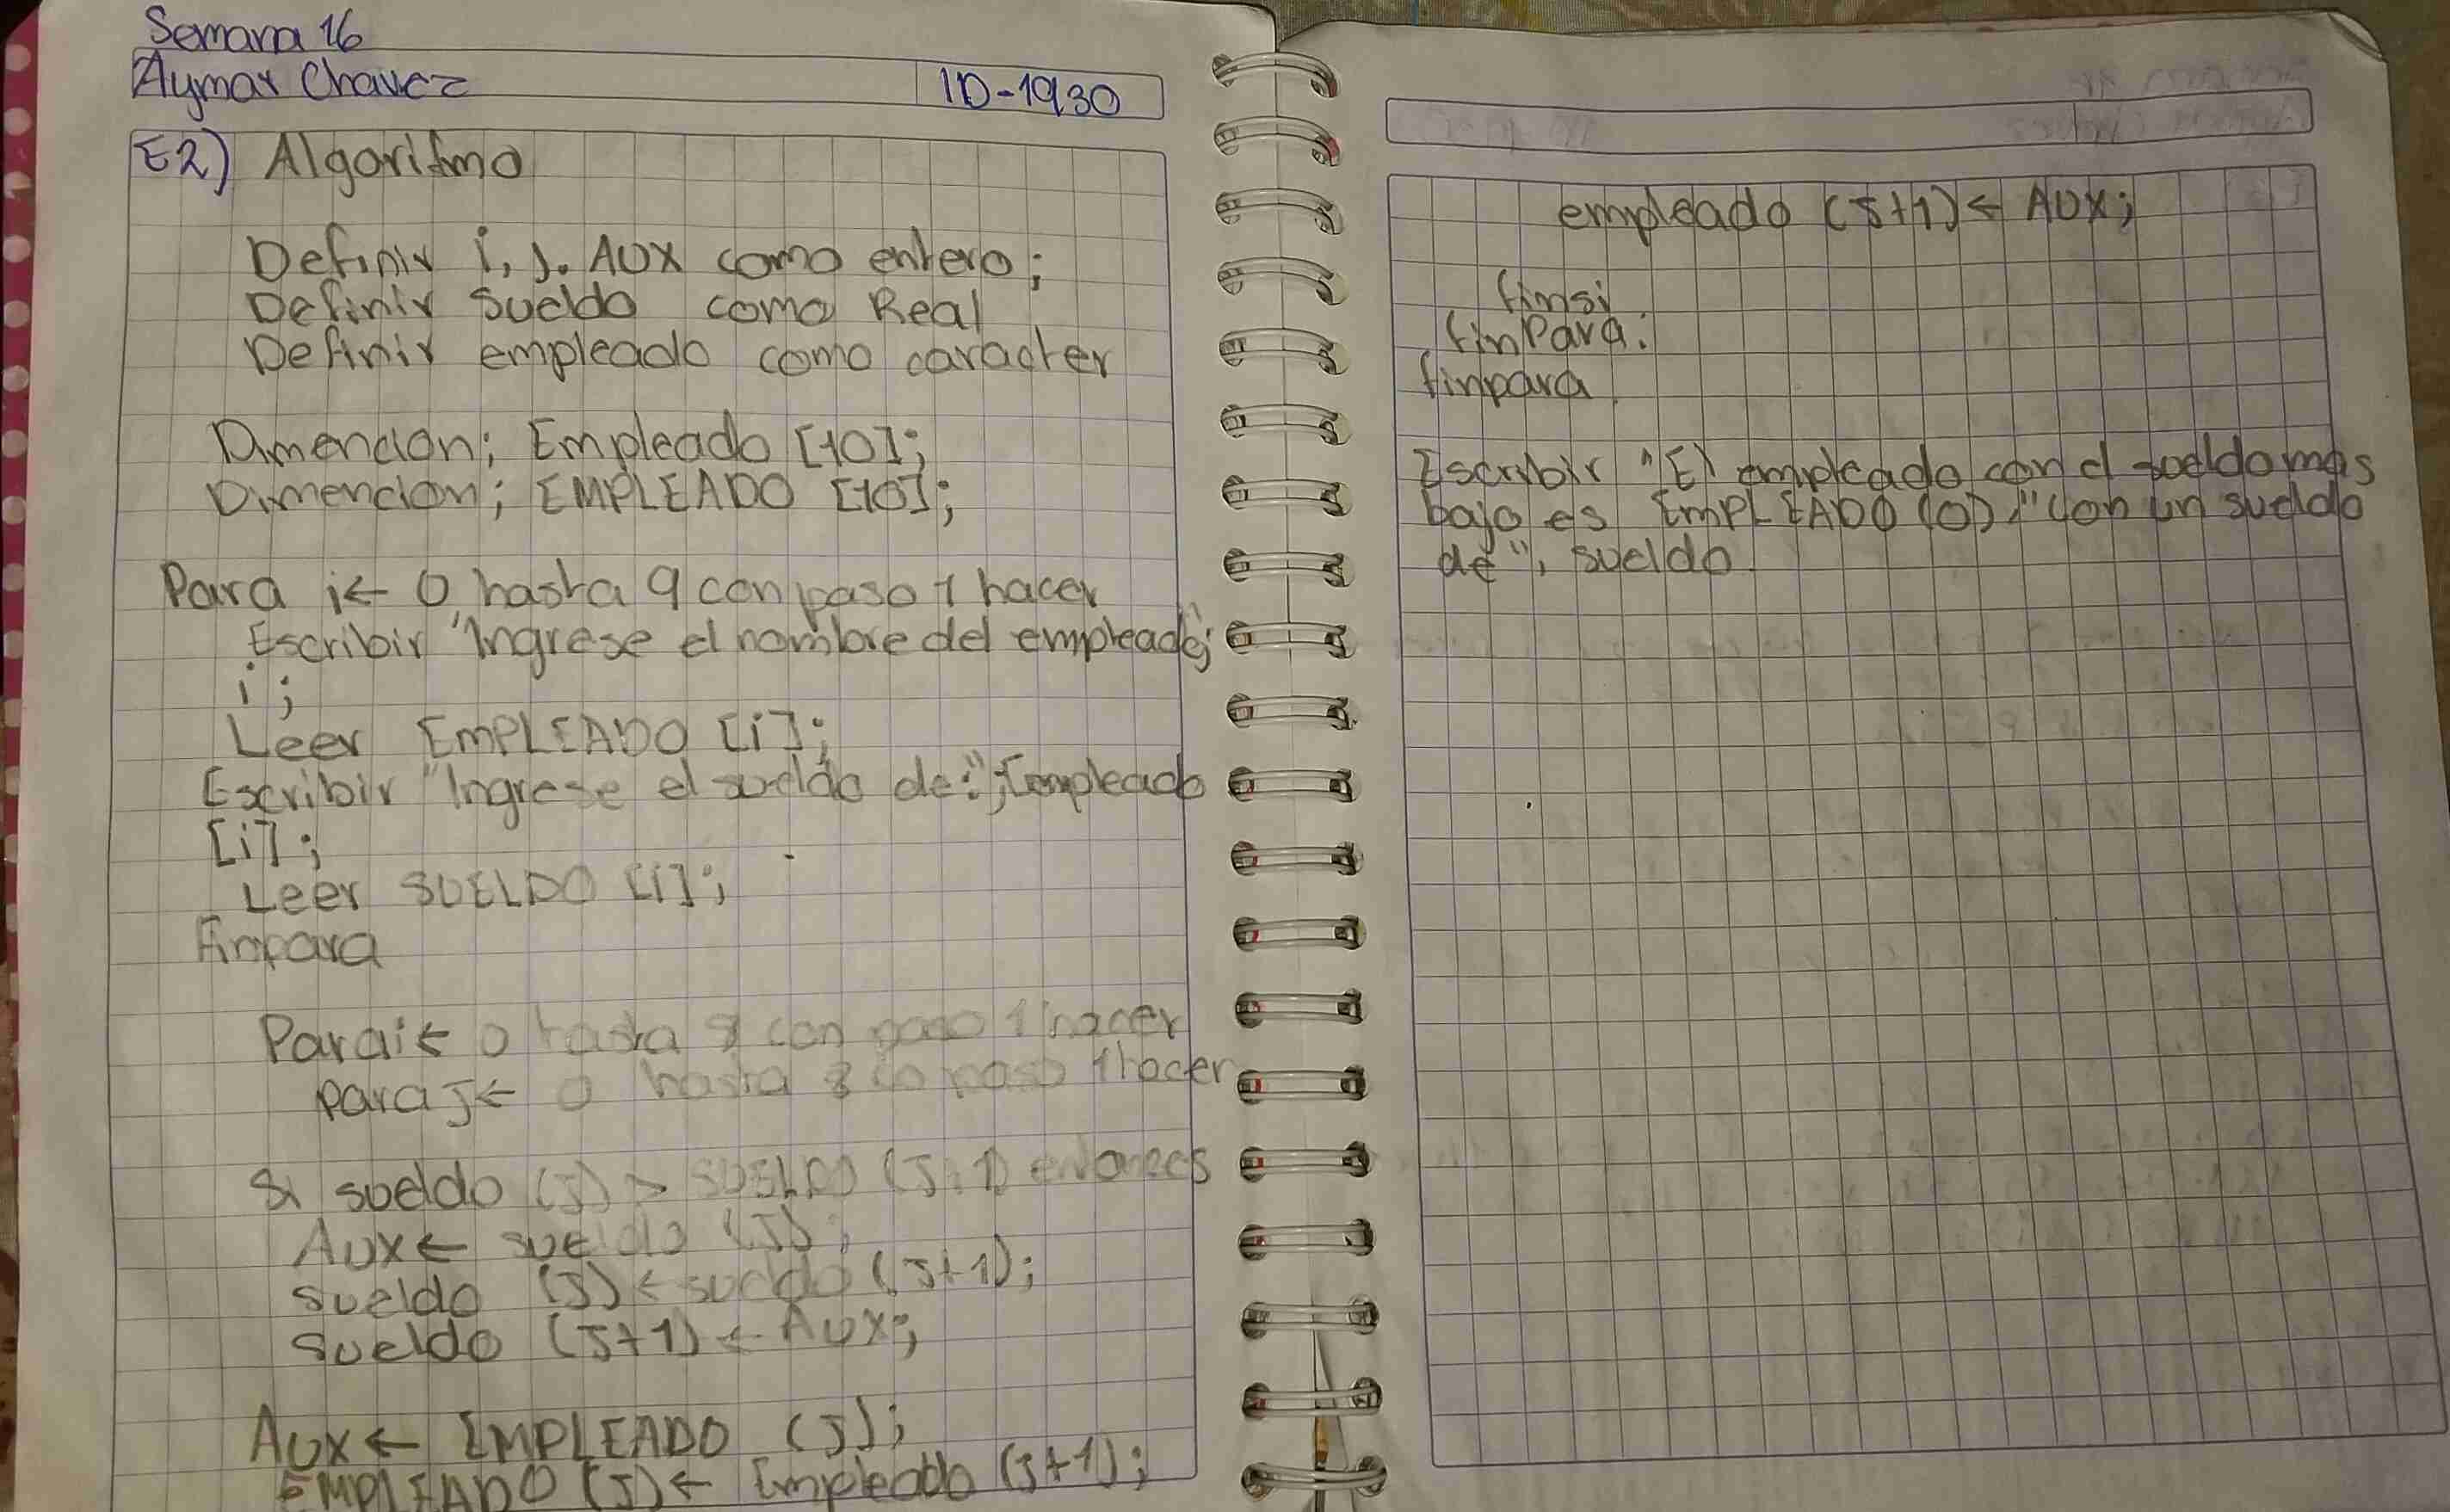 Semana 16
Aymar Chavez ID-1930
E2) Algoritmo
Definir i, j. AUX como entero;
Definir Sueldo como Real
Definir empleado como caracter
Dimencion; Empleado [10];
Dimencion; EMPLEADO [10];
Para i← 0 hasta 9 con paso 1 hacer
Escribir "Ingrese el nombre del empleado";
i;
Leer EMPLEADO [i];
Escribir "Ingrese el sueldo de:"; Empleado
[i];
Leer SUELDO [i];
Finpara
Para i← 0 hasta 8 con paso 1 hacer
para J← 0 hasta 8 co paso 1 hacer
Si sueldo (J) > SUELDO (J+1) entonces
AUX← sueldo (J);
sueldo (J) ← sueldo (J+1);
sueldo (J+1) ← AUX;
AUX← EMPLEADO (J);
EMPLEADO (J)← Empleado (J+1);
empleado (J+1)← AUX;
finsi
finPara.
finpara
Escribir "El empleado con el sueldo mas
bajo es EMPLEADO (0), "con un sueldo
de", sueldo.